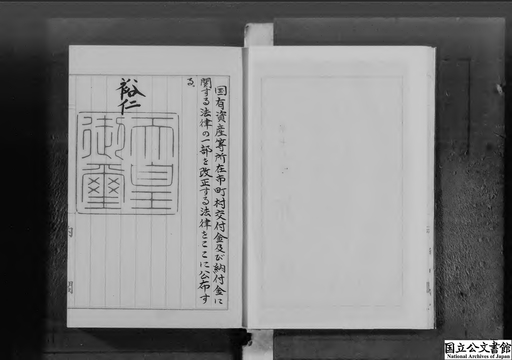 国有資産等所在市町村交付金及び納付金に
関する法律の一部を改正する法律をここに公布す
る。
裕仁
天皇
御璽
国立公文書館
National Archives of Japan